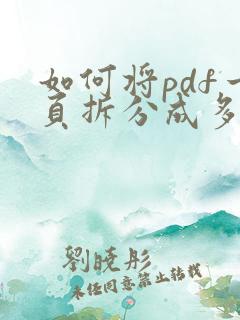 如何将pdf一
页拆分成多
劉曉彤
未经同意禁止转载